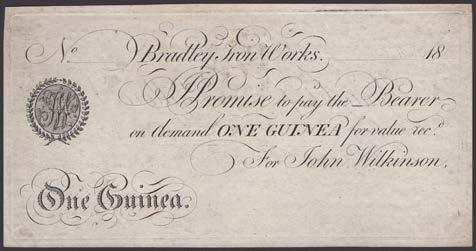 No Bradley Iron Works. 18
I Promise to pay the Bearer
on demand ONE GUINEA for value rec.d
For John Wilkinson,
One Guinea.